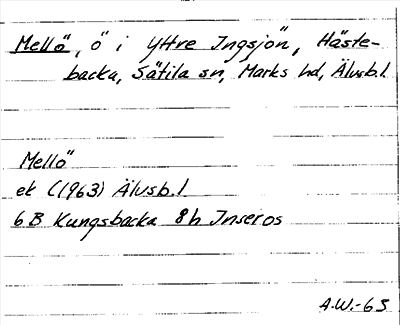 Mellö, ö i Yttre Ingsjön, Häste-
backa, Sätila sn, Marks hd, Älvsb.l.
Mellö
ek (1963) Älvsb.l
6 B Kungsbacka 8 h Inseros
A.W.-63